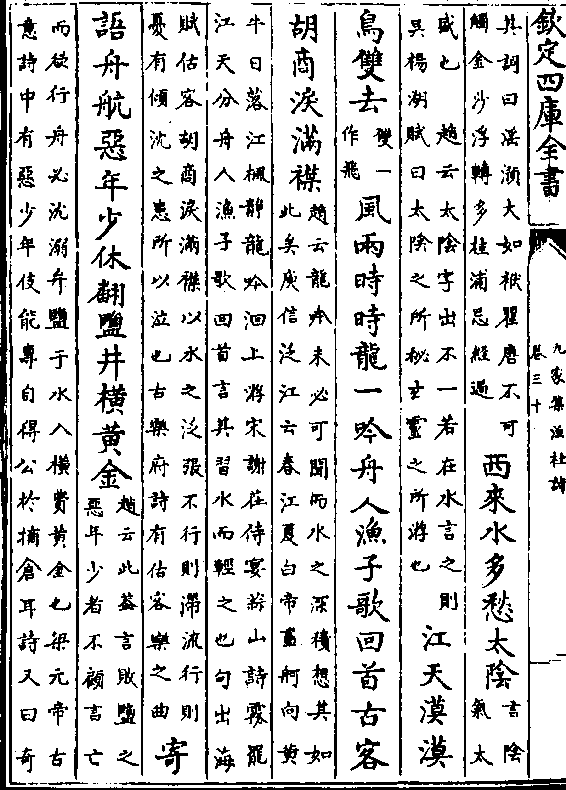 欽定四庫全書
九家集注杜詩
卷三十
其詞曰滛澦大如袱瞿唐不可
觸金沙浮轉多桂浦忌經過
西來水多愁太陰
言陰
氣太
盛也　趙云太陰字出不一若在水言之則
吳楊泓賦曰太陰之所祕玄靈之所游也
江天漠漠
鳥雙去
雙一
作飛
風雨時時龍一吟舟人漁子歌回首古客
胡商淚滿襟
趙云龍吟未必可聞而水之深積想其如
此矣庾信泛江云春江夏白帝畫舸向黄
牛日落江楓靜龍吟洄上游宋謝莊侍宴蒜山詩霧罷
江天分舟人漁子歌回首言其習水而輕之也句出海
賦估客胡商淚滿襟以水之泛漲不行則滯流行則
憂有傾沈之患所以泣也古樂府詩有估客樂之曲
寄
語舟航惡年少休翻鹽井橫黄金
趙云此蓋言敗鹽之
惡年少者不顧言亡
而欲行舟必沈溺弃鹽于水入橫費黄金也梁元帝古
意詩中有惡少年伎能專自得公於摘倉耳詩又曰奇